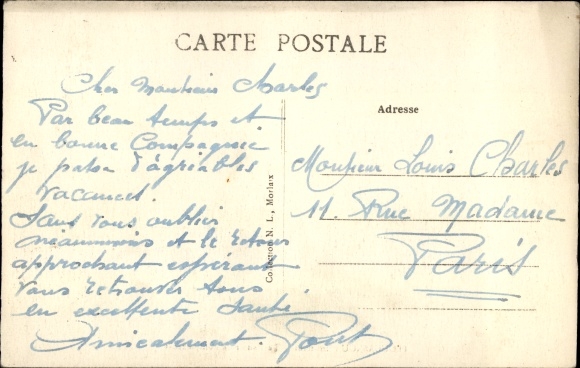 CARTE POSTALE
Cher Monsieur Charles
Par beau temps et
en bonne Compagnie
je passe d'agréables
vacances.
Sans vous oublier
néanmoins et le retour
approchant espérant
vous retrouver tous
en excellente santé
Amicalement.
Collection N. L., Morlaix
Adresse
Monsieur Louis Charles
11. Rue Madame
Paris